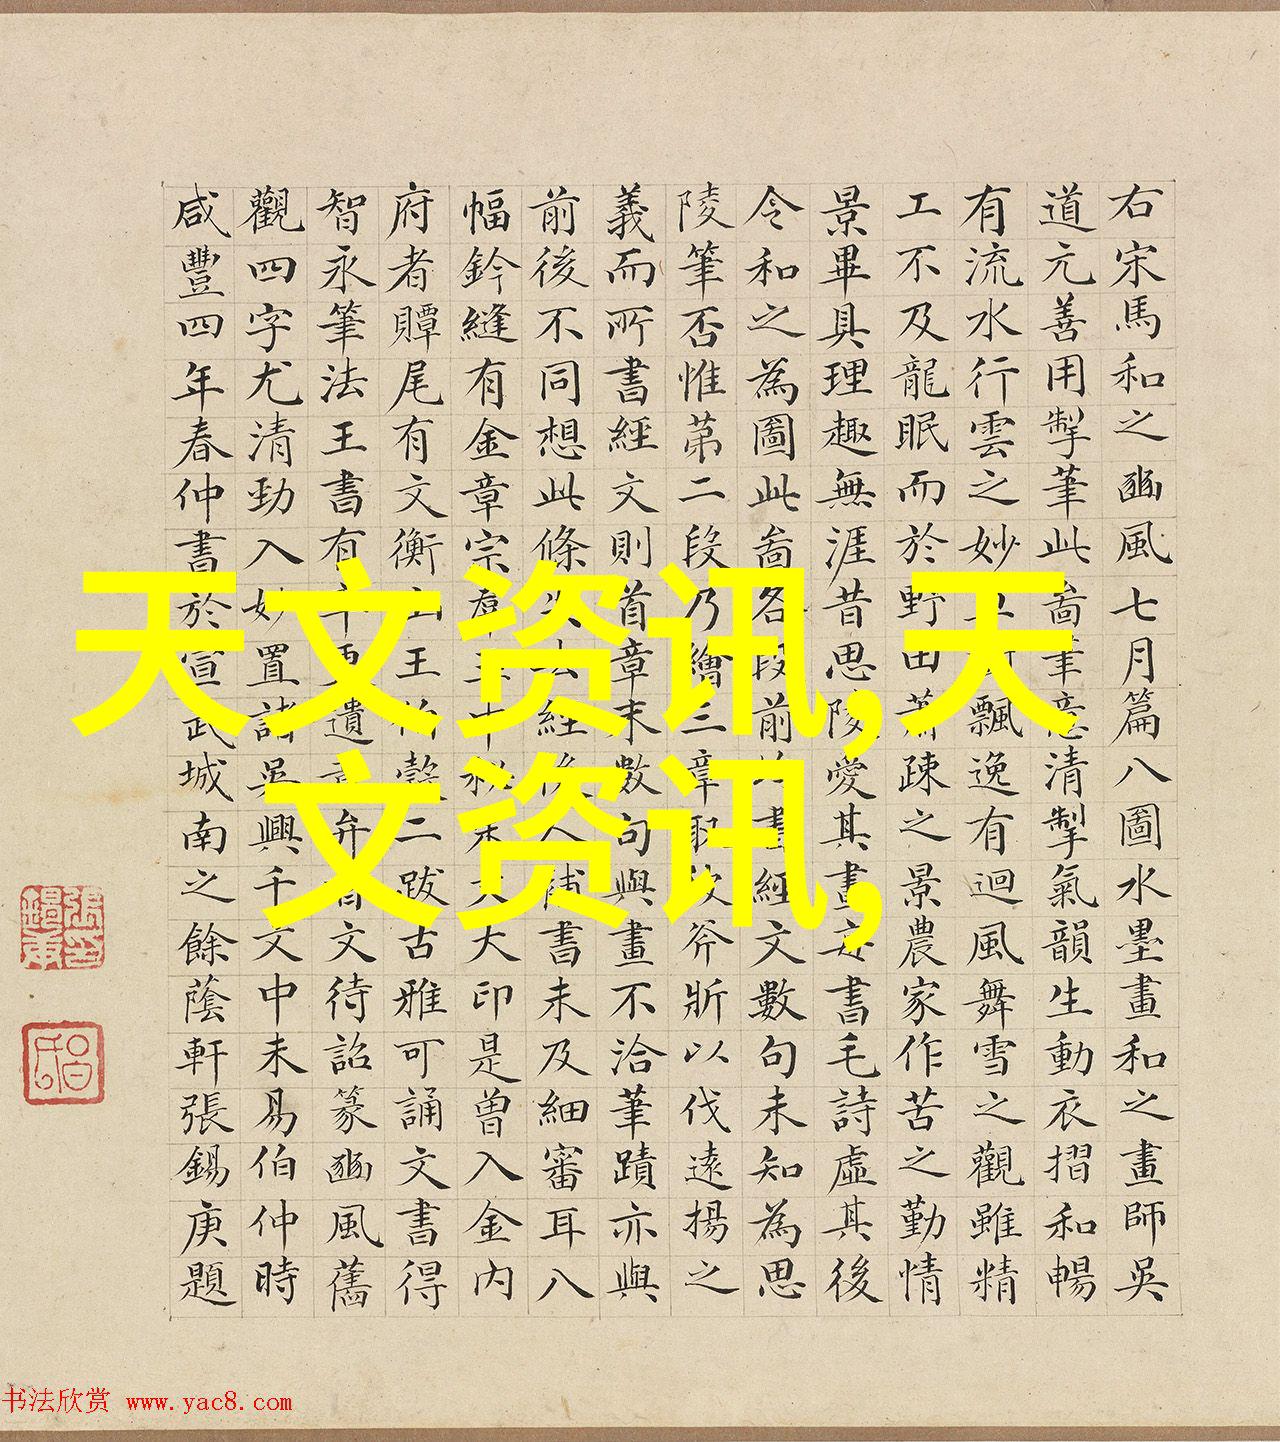 右宋馬和之豳風七月篇八圖水墨畫和之畫師吳
道元善用掣筆此啚筆意清掣氣韻生動衣摺和暢
有流水行雲之妙飄逸有迴風舞雪之觀雖精
工不及龍眠而於野田蕭疎之景農家作苦之勤情
景畢具理趣無涯昔思陵愛其畫每書毛詩虛其後
令和之為圖此啚各段前書經文數句未知為思
陵筆否惟第二段乃繪三章取彼斧斨以伐遠揚之
義而所書經文則首章末數句與畫不洽筆蹟亦與
前後不同想此條失去經後人補書未及細審耳八
幅鈐縫有金章宗群玉中秘朱文大印是曾入金內
府者贉尾有文衡山王伯穀二跋古雅可誦文書得
智永筆法王書有遺意弁首文待詔篆豳風舊
觀四字尤清勁入妙置諸吳興千文中未易伯仲時
咸豐四年春仲書於宣武城南之餘蔭軒張錫庚題
天文资讯,天
文资讯,
书法欣赏 www.yac8.com